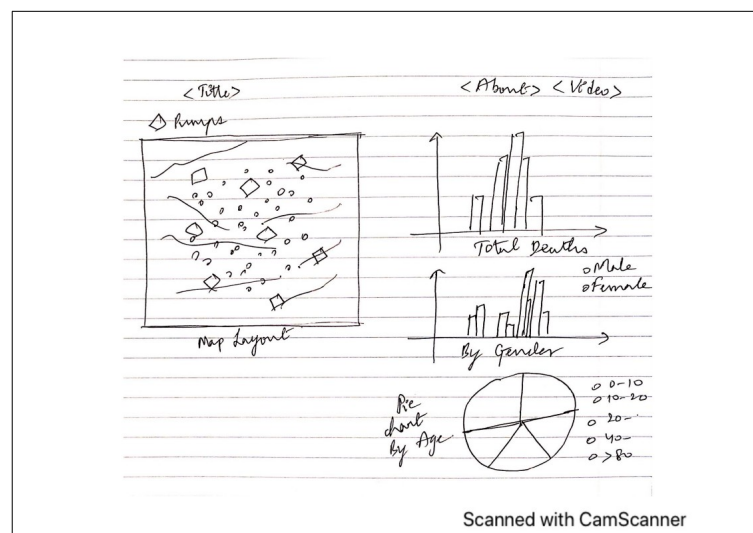 <Title>
<About> <Video>
Pumps
Map Layout
Total Deaths
Male
Female
By Gender
Pie
chart
By Age
0-10
10-20
20-
40-
>80
Scanned with CamScanner